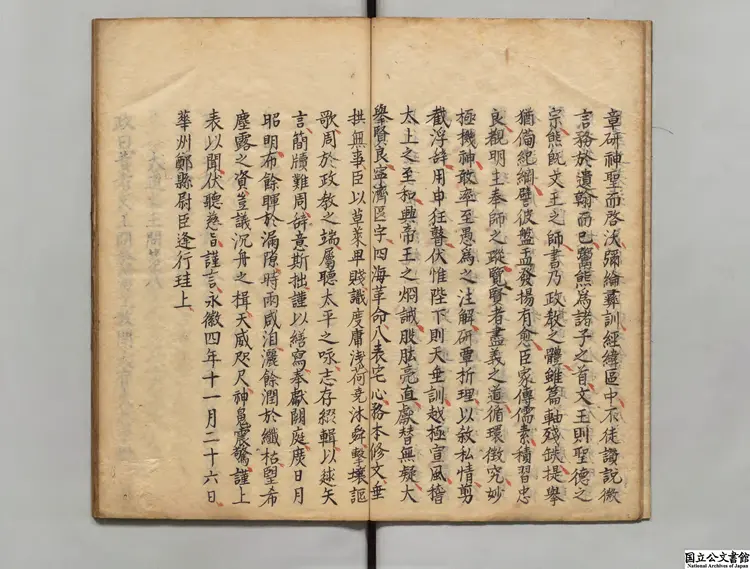 章研神聖而啓沃彌綸彝訓經緯區中不徒讜說微
言務於遺翰而已鬻熊爲諸子之首文王則聖德之
宗熊既文王之師書乃政教之體雖篇軸殘缺提舉
猶備紀綱譬彼盤盂發揚有愈臣家傳儒素積習忠
良觀明主奉師之蹤覽賢者盡義之道循環徵究妙
極機神敢率至愚爲之注解研覈折理以敘私情剪
截浮辞用申狂瞽伏惟陛下則天垂訓越極宣風
太上之至和興帝王之炯誡股肱亮直獻替無疑大
舉賢良寧濟區宇四海革命八表宅心務本修文垂
拱無事臣以草萊卑賤識度庸淺荷堯沐舜擊壤謳
歌周於政教之端屬聽太平之咏志存綴輯以述矢
言簡牘難周辞意斯拙謹以繕寫奉獻闕庭庶日月
昭明布餘暉於漏隙時雨咸洎灑餘潤於纖枯望希
塵露之資豈議沉舟之楫天威咫尺神魂震驚謹上
表以聞伏聽慈旨謹言永徽四年十一月二十六日
華州鄭縣尉臣逢行珪上
国立公文書館
National Archives of Japan